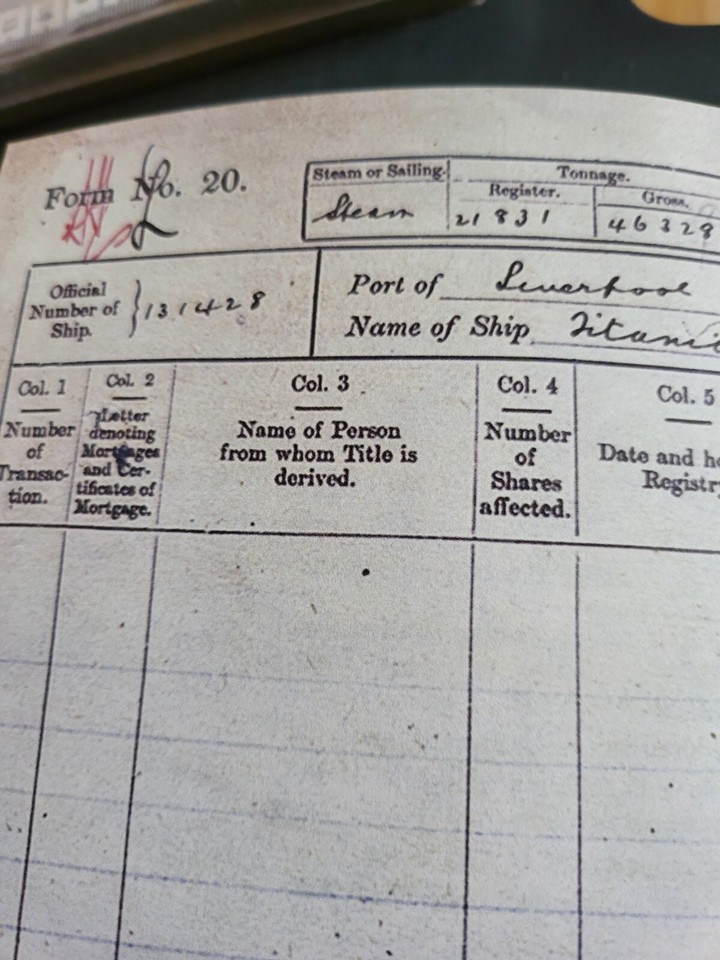 Form No. 20.
Steam or Sailing.
Tonnage.
Register.
Gross.
Steam
21831
46328
Official
Number of
Ship.
131428
Port of Liverpool
Name of Ship Titanic
Col. 1
Number
of
Transac-
tion.
Col. 2
Letter
denoting
Mortgages
and Cer-
tificates of
Mortgage.
Col. 3
Name of Person
from whom Title is
derived.
Col. 4
Number
of
Shares
affected.
Col. 5
Date and ho
Registr